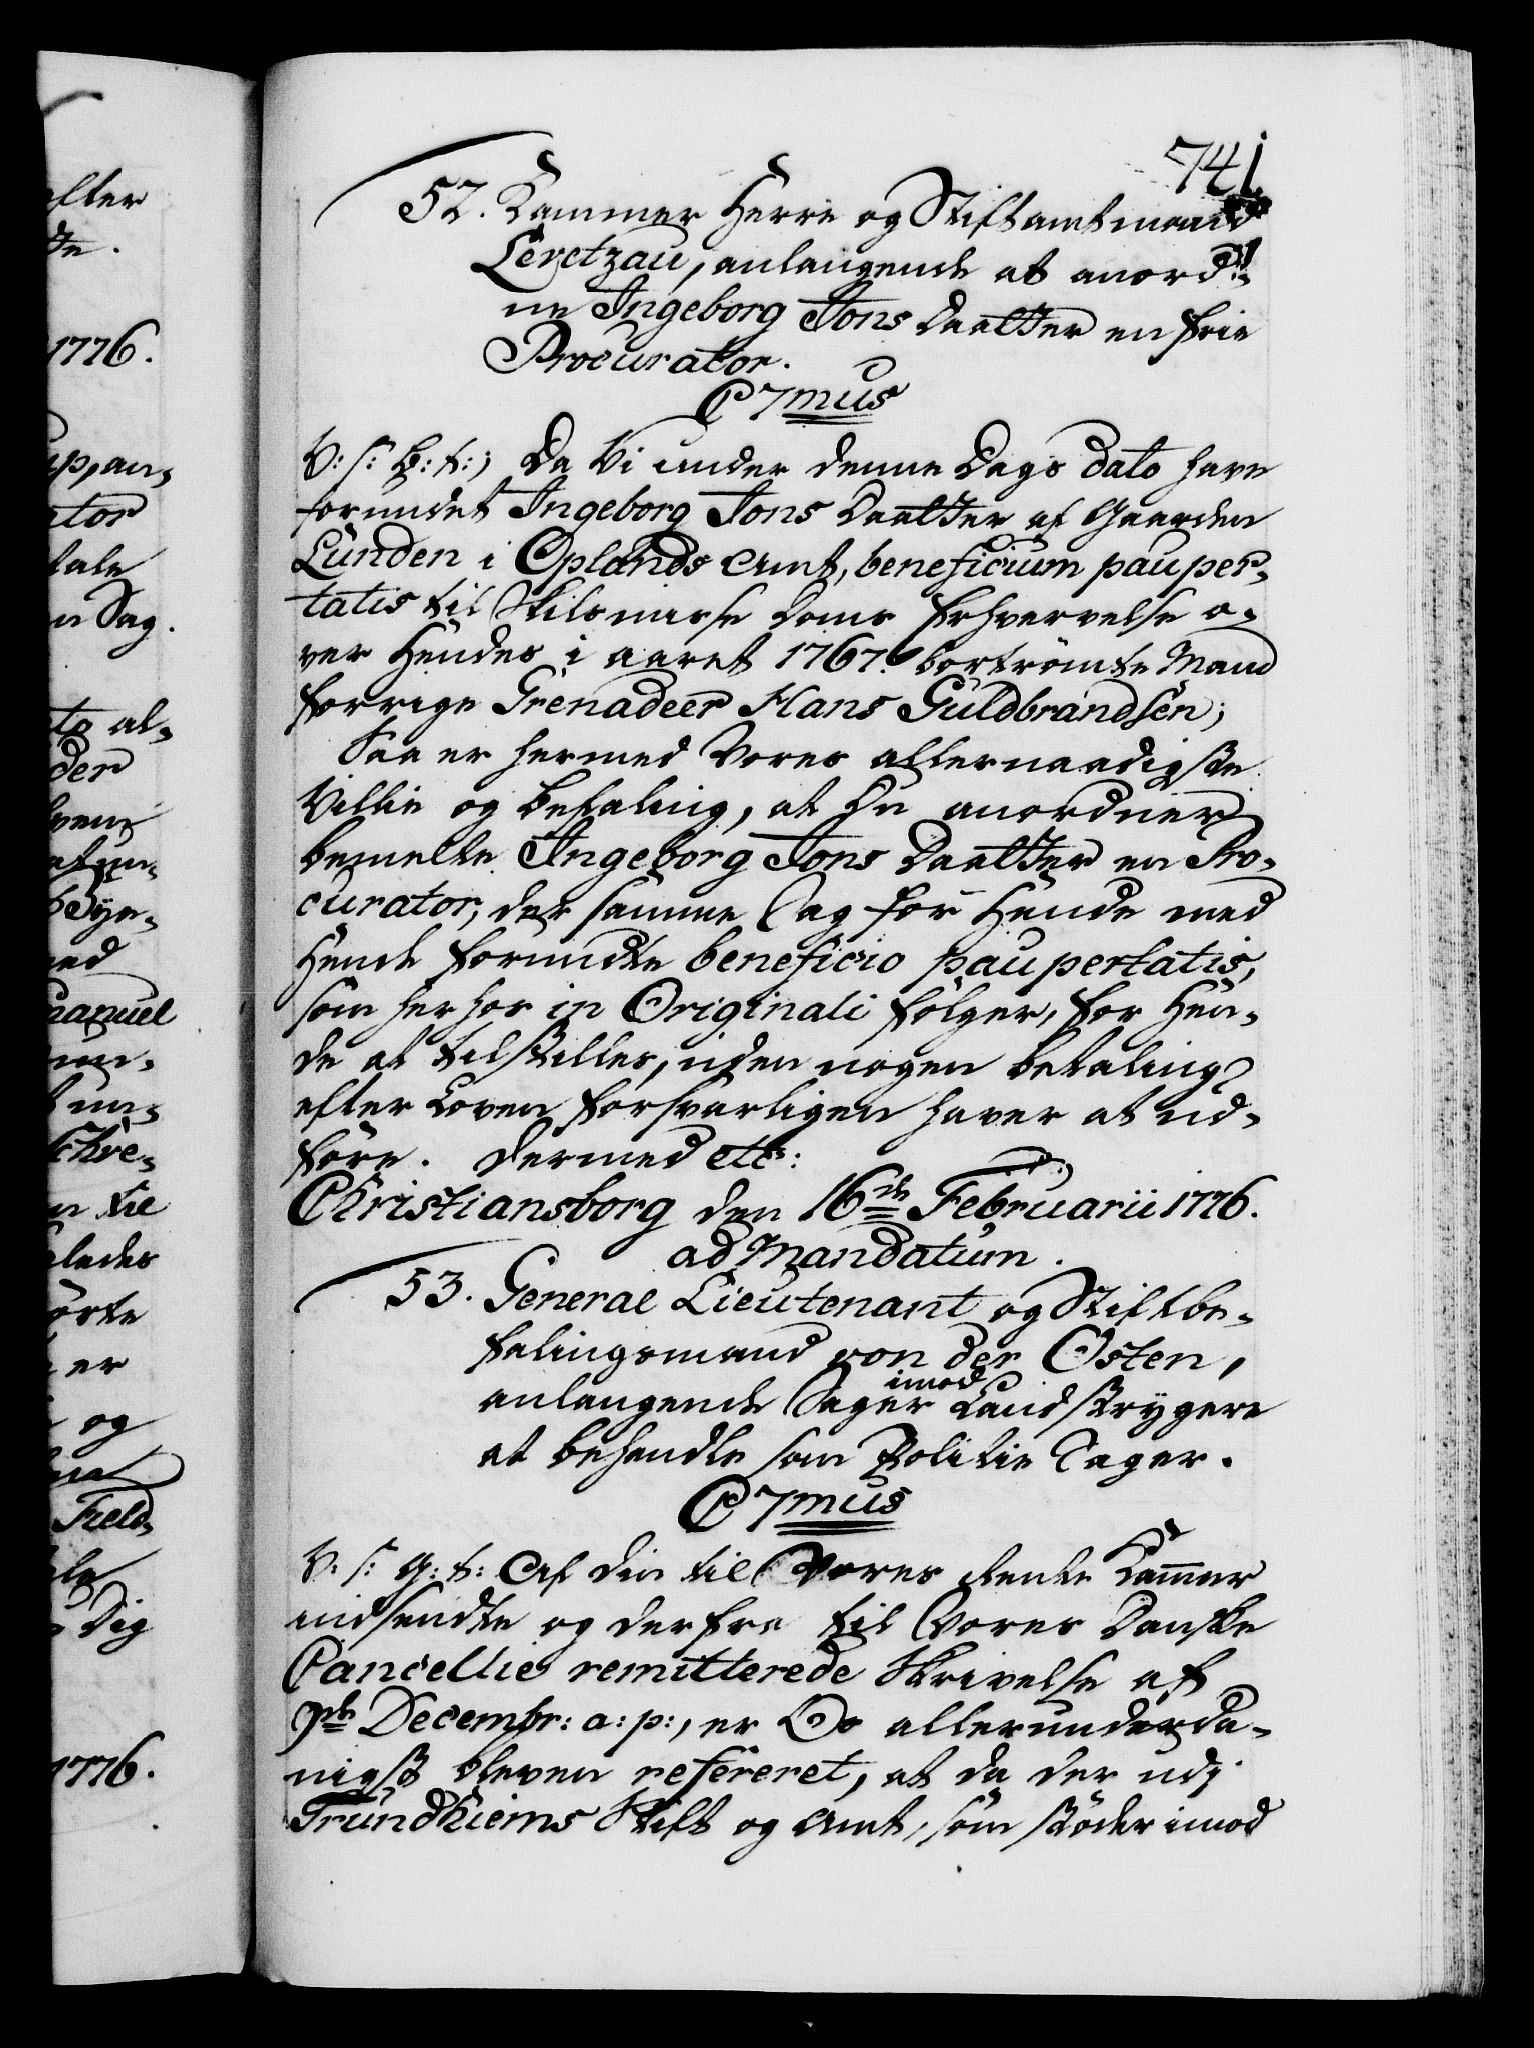 741
52. Kammer Herre og Stiftamtmand
Lervtzau, anlangende at anord-
ne Ingeborg Jons Daatter en frie
Procurator.
C 7mus
V: s: B: t:; Da Vi under denne Dags Dato have
forundt Ingeborg Jons Daatter af Gaarden
Lunden i Oplands Amt, beneficium pauper-
tatis til Skilsmisse Doms Erhvervelse o-
ver Hendes i Aaret 1767. bortrömte Mand
forrige Grenadeer Hans Guldbrandsen;
Saa er hermed Vores allernaadigste
Villie og Befaling, at du anordner
bemelte Ingeborg Jons Daatter en Pro-
curator, der samme Sag for Hende med
Hende forundte beneficio paupertatis,
som her hos in Originali fölger, for Hen-
de at tilstilles, uden nogen Betaling
efter Loven forsvarligen haver at ud-
före. Dermed etc:
Christiansborg den 16de Februarii 1776.
ad Mandatum.
53. General Lieutenant og Stiftbe-
falingsmand von der Osten,
anlangende Sager imod Landstrygere
at behandle som Politie Sager.
C 7mus
V: s: G: t: Af din til Vores Rente Kammer
indsendte og derfra til Vores Danske
Cancellie remitterede Skrivelse af
7de Decembr: a: p:, er Os allerunderda-
nigst bleven refereret, at da der udj
Trundhiems Stift og Amt, som støder imod
efter
1776.
ator
Sag.
der
med
til
og
Field-
Dig
1776.